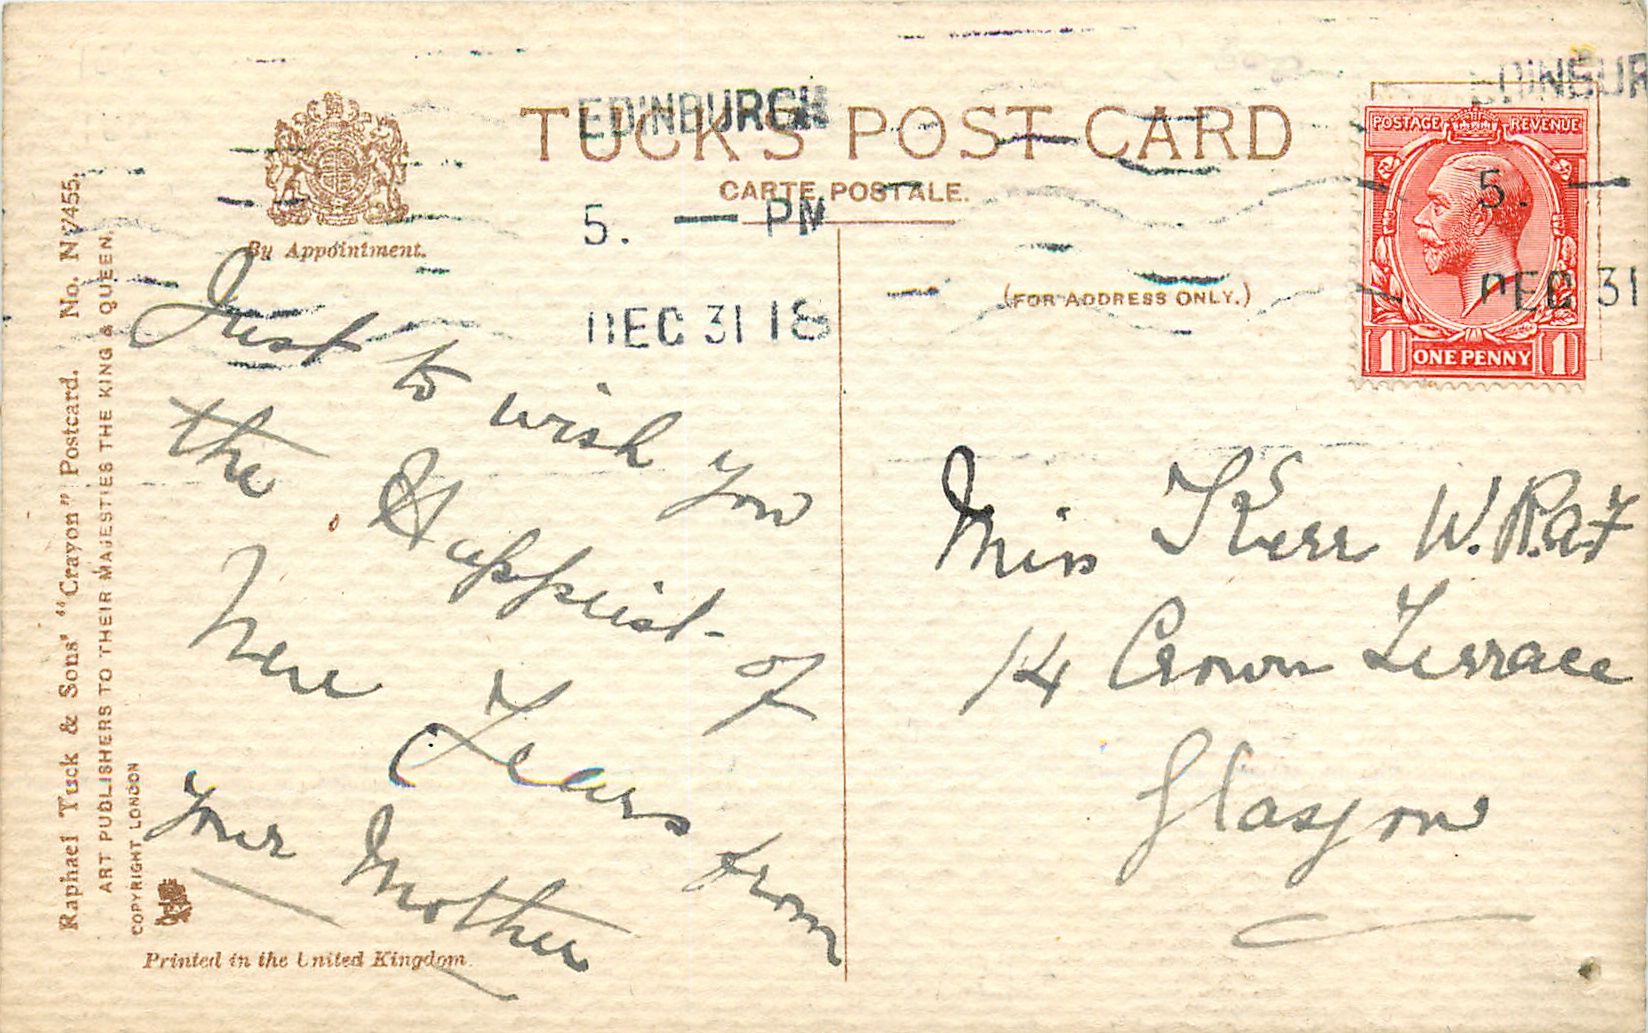 EDINBURGH
5. — PM
DEC 31 18
EDINBUR
5. —
DEC 31
TUCK'S POST CARD
CARTE POSTALE.
By Appointment.
(FOR ADDRESS ONLY.)
POSTAGE REVENUE
1 ONE PENNY 1
Just to wish you
the Happiest of
New Years from
Your Mother
Miss Kerr W.R.A.F
14 Crown Terrace
Glasgow
Raphael Tuck & Sons' "Crayon" Postcard. No. NY455.
ART PUBLISHERS TO THEIR MAJESTIES THE KING & QUEEN.
COPYRIGHT LONDON
Printed in the United Kingdom